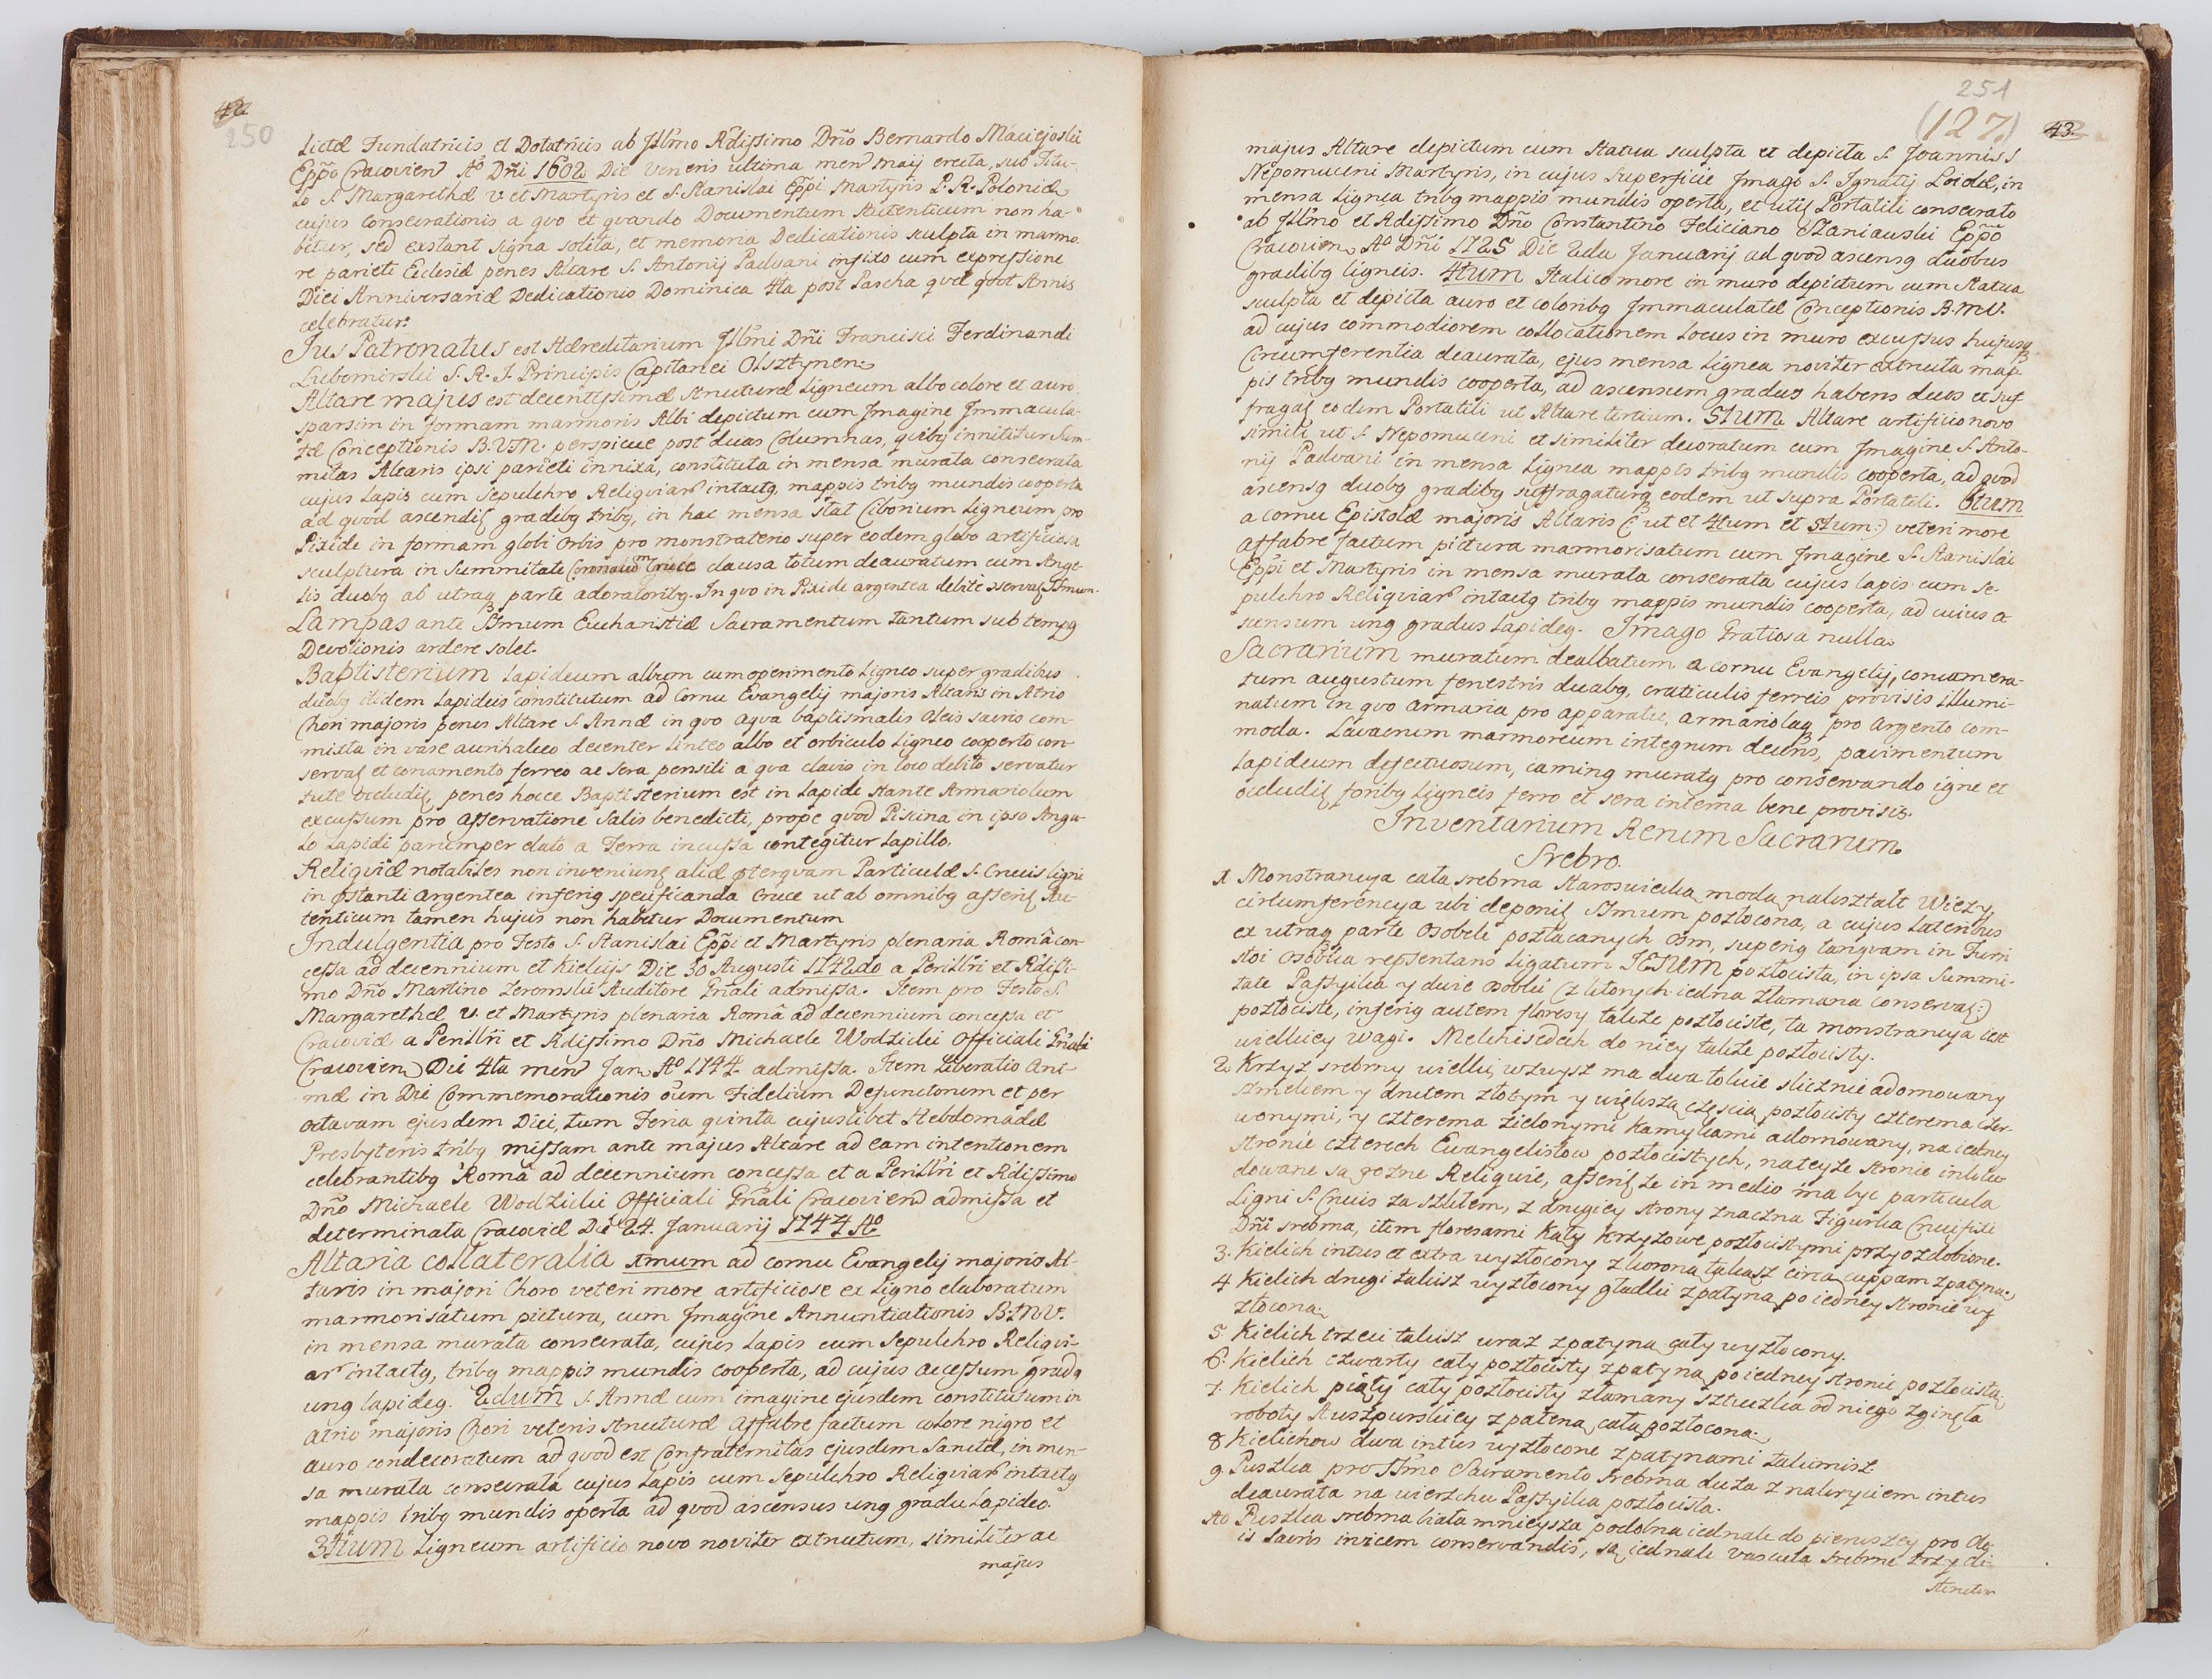 42
250
lictæ Fundatricis et Dotatricis ab Jllmo Rdissimo Dño Bernardo Maciejoski
Eppo Cracovien Aº Dñi 1602 Die Veneris ultima men Maij erecta, sub Titu-
lo S. Margarethæ V. et Martyris et S. Stanislai Eppi Martyris P. R. Poloniæ
cujus consecrationis a quo et quando Documentum Autenticum non ha-
betur, sed extant signa solita, et memoria Dedicationis sculpta in marmo
re parieti Ecclesiæ penes Altare S. Antonij Paduani infixo cum expressione
Diei Anniversariæ Dedicationis Dominica 4ta post Pascha quæ qdot Annis
celebratur.
Jus Patronatus est Hæreditarium Jllmi Dñi Francisci Ferdinandi
Lubomirski S. R. J. Principis Capitanei Olsztynen.
Altare majus est decentissimæ structuræ Ligneum albo colore et auro
sparsim in formam marmoris Albi depictum cum Jmagine Jmmacula-
tæ Conceptionis B.V.M. perspicue post duas Columnas, quibq innititur Sum-
mitas Altaris ipsi parieti innixa, constituta in mensa murata consecrata
cujus Lapis cum Sepulchro Reliquiar intactq, mappis tribq mundis cooperta
ad quod ascendit gradibq tribq, in hac mensa stat Ciborium Ligneum pro
Pixide in formam globi Orbis pro monstraterio super eodem globo artificiosa
sculptura in Summitate Coronaum Cruce clausa totum deauratum cum Ange-
lis duobq ab utraq parte adoratoribq. In quo in Pixide argentea debite asservat SSmum.
Lampas ante SSmum Eucharistiæ Sacramentum tantum sub tempq
Devotionis ardere solet.
Baptisterium Lapideum album cum operimento Ligneo super gradibus
duobq itidem Lapideis constitutum ad Cornu Evangelij majoris Altaris in Atrio
Chori majoris penes Altare S. Annæ in quo aqua baptismalis Oleis sacris com-
mixta in vase aurihalceo decenter Linteo albo et orbiculo Ligneo cooperto con-
servat et conamento ferreo ac sera pensili a qua clavis in loco debito servatur
tute occludit, penes hocce Baptisterium est in Lapide stante Armariolum
excussum pro Asservatione Salis benedicti, prope quod Piscina in ipso Angu-
lo Lapidi parumper elato a Terra incussa contegitur Lapillo.
Reliquiæ notabiles non inveniunt aliæ pterquam Particulæ S. Crucis Ligni
in pstanti Argentea inferiq specificanda Cruce ut ab omnibq asserit Au-
tenticum tamen hujus non habetur Documentum
Indulgentia pro Festo S. Stanislai Eppi et Martyris plenaria Româ con-
cessa ad decennium et Kielcijs Die 30 Augusti 1742do a Perillri et Rdissi-
mo Dño Martino Zeromski Auditore Gñali admissa. Item pro Festo S.
Margarethæ V. et Martyris plenaria Româ ad decennium concessa et
Cracoviæ a Perillri et Rdissimo Dño Michaele Wodzicki Officiali Gñali
Cracovien Die 4ta men Jan Aº 1744. admissa. Item Liberatio Ani-
mæ in Die Commemorationis oium Fidelium Defunctorum et per
octavam ejusdem Diei, tum Feria quinta cujuslibet Hebdomadæ
Presbyteris tribq missam ante majus Altare ad eam intentionem
celebrantibq Româ ad decennium concessa et a Perillri et Rdissimo
Dño Michaele Wodzicki Officiali Gñali Cracovien admissa et
determinata Cracoviæ Die 24. Januarij 1744 Aº
Altaria collateralia 1mum ad cornu Evangelij majoris Al-
taris in majori Choro veteri more artificiose ex Ligno elaboratum
marmorisatum pictura, cum Jmagine Annuntiationis B.M.V.
in mensa murata consecrata, cujus Lapis cum Sepulchro Reliqui-
ar intactq, tribq mappis mundis cooperta, ad cujus accessum gradq
unq lapideq. 2dum S. Annæ cum imagine ejusdem constitutum in
atrio majoris Chori veteris structuræ affabre factum colore nigro et
auro condecoratum ad quod est Confraternitas ejusdem Sanctæ, in men-
sa murata consecrata cujus Lapis cum Sepulchro Reliquiar intactq
mappis tribq mundis operta ad quod ascensus unq gradu Lapideo.
3tium Ligneum artificio novo noviter extructum, similiter ac
majus
251
(127.)
43.
majus Altare depictum cum statua sculpta et depicta S. Joannis
Nepomuceni Martyris, in cujus superficie Jmago S. Ignatij Loiolæ, in
mensa Lignea tribq mappis mundis operta, et utit Portatili consecrato
ab Jllmo et Rdissimo Dño Constantino Feliciano Szaniauski Eppo
Cracovien Aº Dñi 1725 Die 2da Januarij ad quod ascensq duobus
gradibq ligneis. 4tum Italico more in muro depictum cum statua
sculpta et depicta auro et coloribq Jmmaculatæ Conceptionis B.M.V.
ad cujus commodiorem collocationem Locus in muro excussus hujusq
Circumferentia deaurata, ejus mensa Lignea noviter extructa map-
pis tribq mundis cooperta, ad ascensum gradus habens duos et suf-
fragat eodem Portatili ut Altare tertium. 5tum Altare artificio novo
simili ut S. Nepomuceni et similiter decoratum cum Jmagine S. Anto-
nij Paduani in mensa Lignea mappis tribq mundis cooperta, ad quod
ascensq duobq gradibq suffragaturq eodem ut supra Portatili. 6tum
a cornu Epistolæ majoris Altaris (: ut et 4tum et 5tum :) veteri more
affabre factum pictura marmorisatum cum Jmagine S. Stanislai
Eppi et Martyris in mensa murata consecrata cujus lapis cum se-
pulchro Reliquiar intactq tribq mappis mundis cooperta, ad cuius a-
scensum unq gradus Lapideq. Jmago Gratiosa nulla.
Sacrarium muratum dealbatum a cornu Evangelij, concamera-
tum augustum fenestris duabq, craticulis ferreis provisis illumi-
natum in quo armaria pro apparatu, armariolaq pro argento com-
moda. Lavacrum marmoreum integrum decens, pavimentum
Lapideum defectuosum, caminq muratq pro conservando igne et
occludit foribq Ligneis ferro et sera interna bene provisis.
Inventarium Rerum Sacrarum.
Srebro.
1 Monstrancya cała srebrna staroswiecką modą nakształt Wieży
circumferencya ubi deponit SSmum pozłocona, a cujus Lateribus
ex utraq parte osobeli pozłacanych osm, superiq tanquam in Turri
stoi osobka repsentans Ligatum JESUM pozłocista, in ipsa Summi-
tate Passyika y dwie osobki (z ktorych iedna złamana conservat:)
pozłociste, inferiq autem floresy także pozłociste, ta monstrancya iest
wielkiey wagi. Melchisedech do niey także pozłocisty.
2 Krzyż srebrny wielki, wzwysz ma dwa łokcie slicznie adornowany
smelcem y drutem złotym y większą częscią pozłocisty czterema czer-
wonymi, y czterema zielonymi kamykami adornowany, na iedney
stronie czterech Ewangelistow pozłocistych, na teyże stronie inklu-
dowane są rożne Reliquie, asserit że in medio ma byc particula
Ligni S. Crucis za szkłem, z drugiey strony znaczna Figurka Crucifixi
Dñi srebrna, item floresami Kąty krzyżowe pozłocistymi przyozdobione.
3. Kielich intus et extra wyzłocony z koroną takąsz circa cuppam z patyną.
4 Kielich drugi takisz wyzłocony gładki z patyną po iedney stronie wy-
złoconą.
5. Kielich trzeci takisz wraz z patyną cały wyzłocony.
6. Kielich czwarty cały pozłocisty z patyną po iedney stronie pozłocistą.
7. Kielich piąty cały pozłocisty złamany sztuczka od niego zginęła
roboty Auszpurskiey z pateną całą pozłoconą.
8 Kielichow dwa intus wyzłocone z patynami takimisz.
9. Puszka pro SSmo Sacramento srebrna duża z nakryciem intus
deaurata na wierzchu Passyika pozłocista.
10 Puszka srebrna biała mnieysza podobna iednak do pierwszey pro Ole-
is sacris invicem conservandis, są iednak vascula srebrne trzy di-